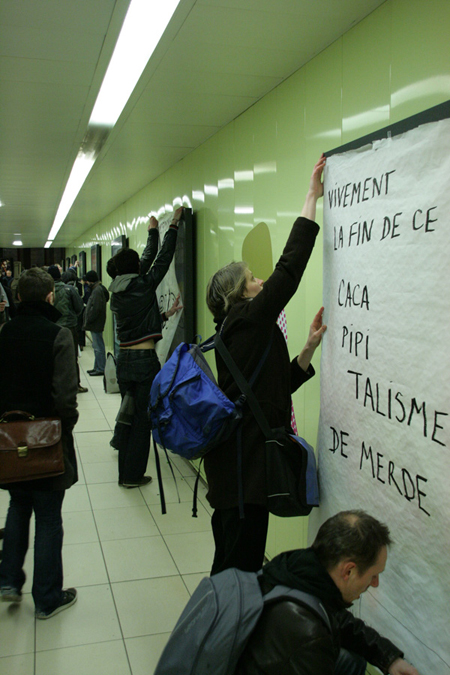 VIVEMENT
LA FIN DE CE
CACA
PIPI
TALISME
DE MERDE